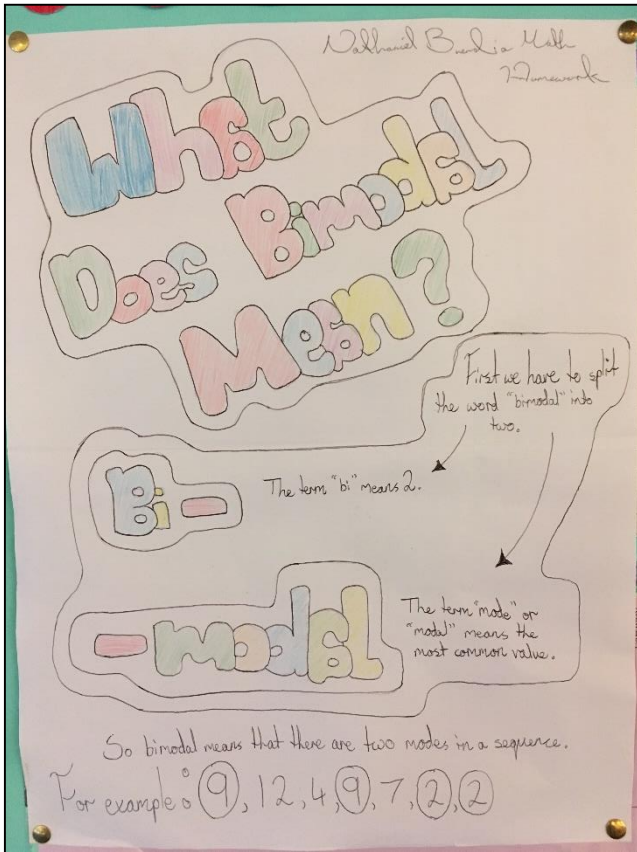 Nathaniel Math
Homework
What
Does Bimodal
Mean?
First we have to split
the word "bimodal" into
two.
Bi -
The term "bi" means 2.
- modal
The term "mode" or
"modal" means the
most common value.
So bimodal means that there are two modes in a sequence.
For example: 9, 12, 4, 9, 7, 2, 2